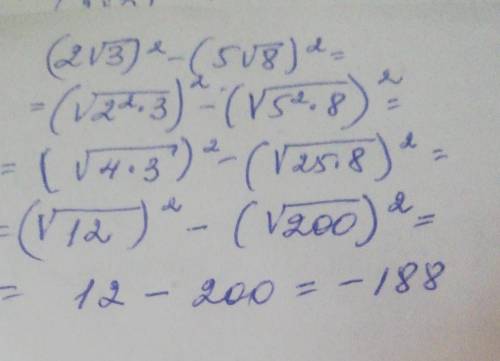 (2√3)² - (5√8)² =
= (√2²·3)² - (√5²·8)² =
= (√4·3)² - (√25·8)² =
= (√12)² - (√200)² =
= 12 - 200 = -188